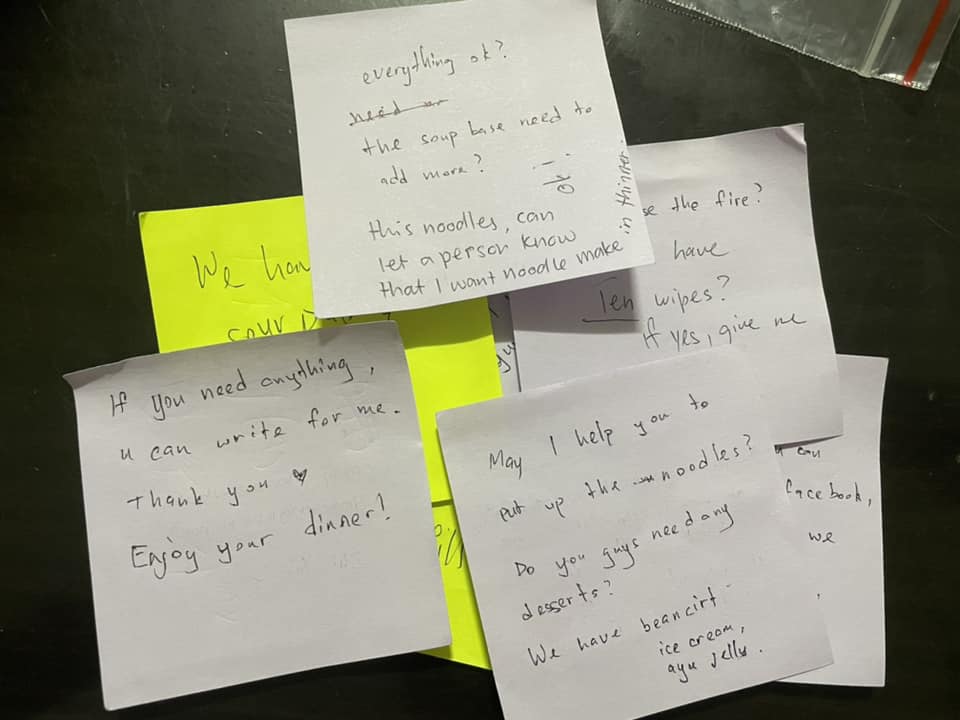 everything ok?
need
the soup base need to
add more?
this noodles, can
let a person know
that I want noodle make
in thinner.
We hav
sour
se the fire?
have
Ten wipes?
If yes, give me
If you need anything,
u can write for me.
Thank you ♥
Enjoy your dinner!
May I help you to
put up the noodles?
Do you guys need any
desserts?
We have beancirt
ice cream,
ayu jelly.
u can
facebook,
we